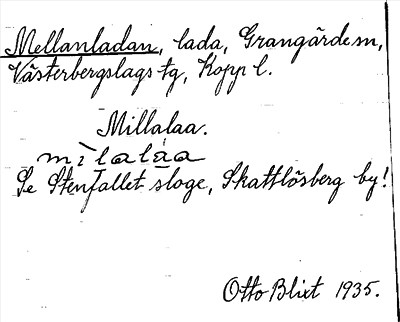 Mellanladan, lada, Grangärde sn,
Västerbergslags tg, Kopp l.
Millalaa.
mìlaláa
Se Stenfallet sloge, Skattlösberg by!
Otto Blixt 1935.